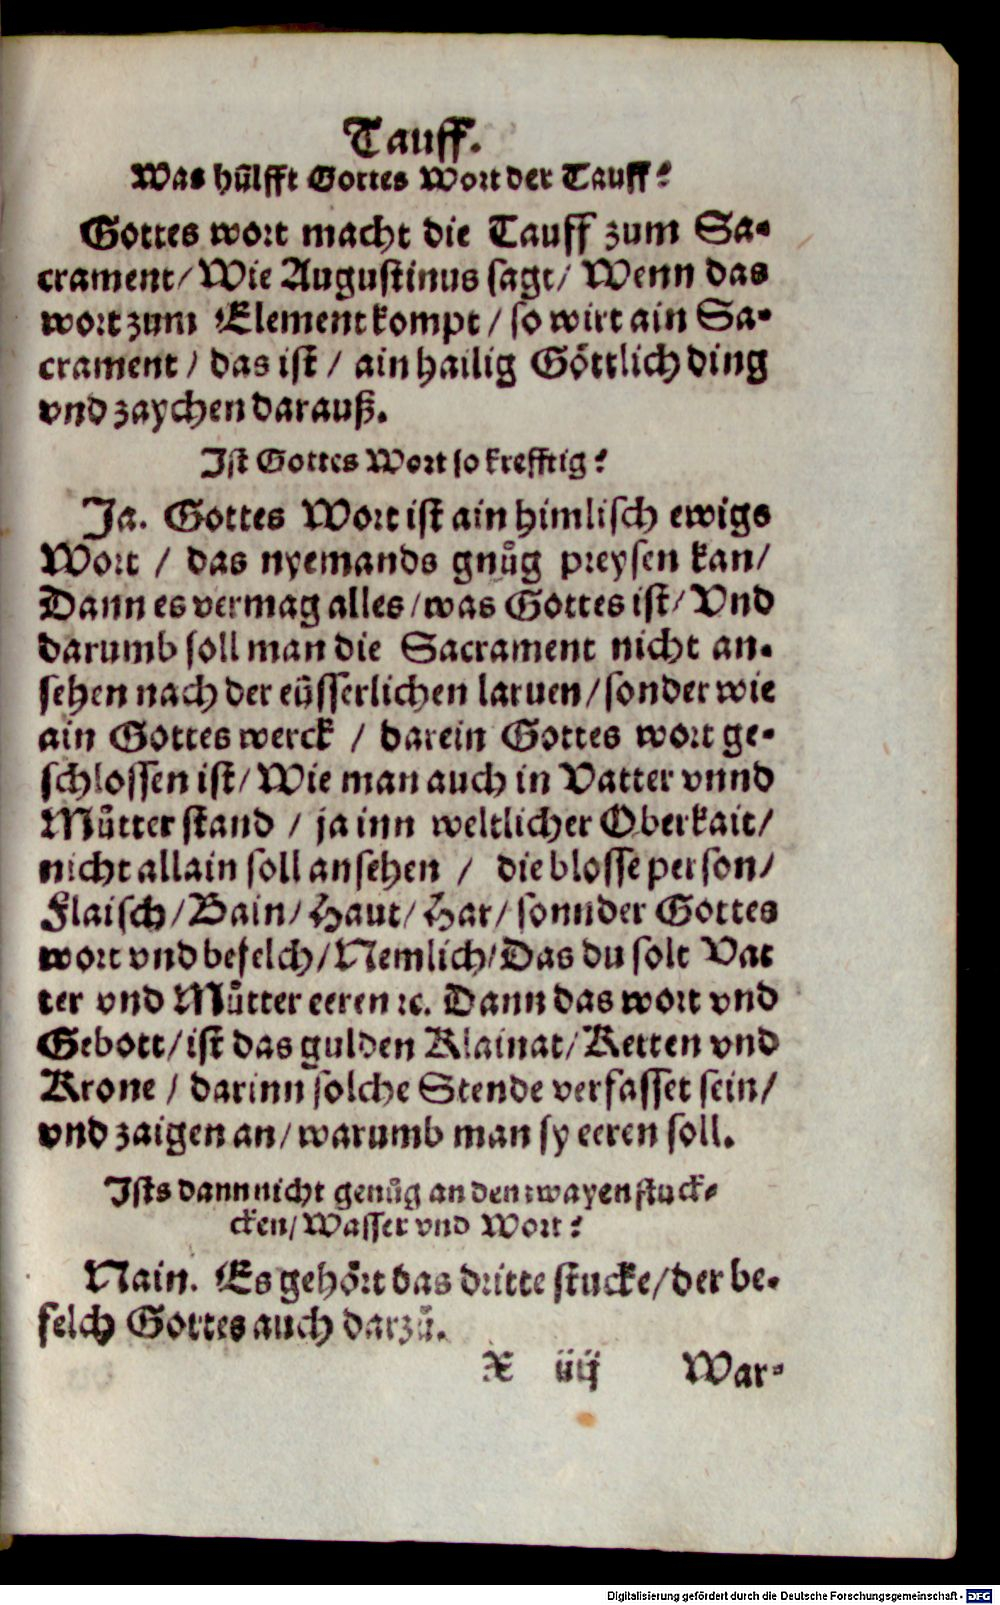 Tauff.
Was hülfft Gottes Wort der Tauff?
Gottes wort macht die Tauff zum Sa-
crament/ Wie Augustinus sagt/ Wenn das
wort zum Element kompt / so wirt ain Sa-
crament / das ist / ain hailig Göttlich ding
vnd zaychen darauß.
Ist Gottes Wort so krefftig?
Ja. Gottes Wort ist ain himlisch ewigs
Wort / das nyemands gnůg preysen kan/
Dann es vermag alles / was Gottes ist/ Vnd
darumb soll man die Sacrament nicht an-
sehen nach der eüsserlichen laruen/ sonder wie
ain Gottes werck / darein Gottes wort ge-
schlossen ist/ Wie man auch in Vatter vnnd
Můtter stand / ja inn weltlicher Oberkait/
nicht allain soll ansehen / die blosse person/
Flaisch/ Bain/ Haut/ Har/ sonnder Gottes
wort vnd befelch/ Nemlich/ Das du solt Vat
ter vnd Můtter eeren ꝛc. Dann das wort vnd
Gebott/ ist das gulden Klainat/ Ketten vnd
Krone / darinn solche Stende verfasset sein/
vnd zaigen an/ warumb man sy eeren soll.
Ists dann nicht genůg an den zwayen stuck-
cken/ Wasser vnd Wort?
Nain. Es gehört das dritte stucke/ der be-
felch Gottes auch darzů.
X iiij War-
Digitalisierung gefördert durch die Deutsche Forschungsgemeinschaft - DFG